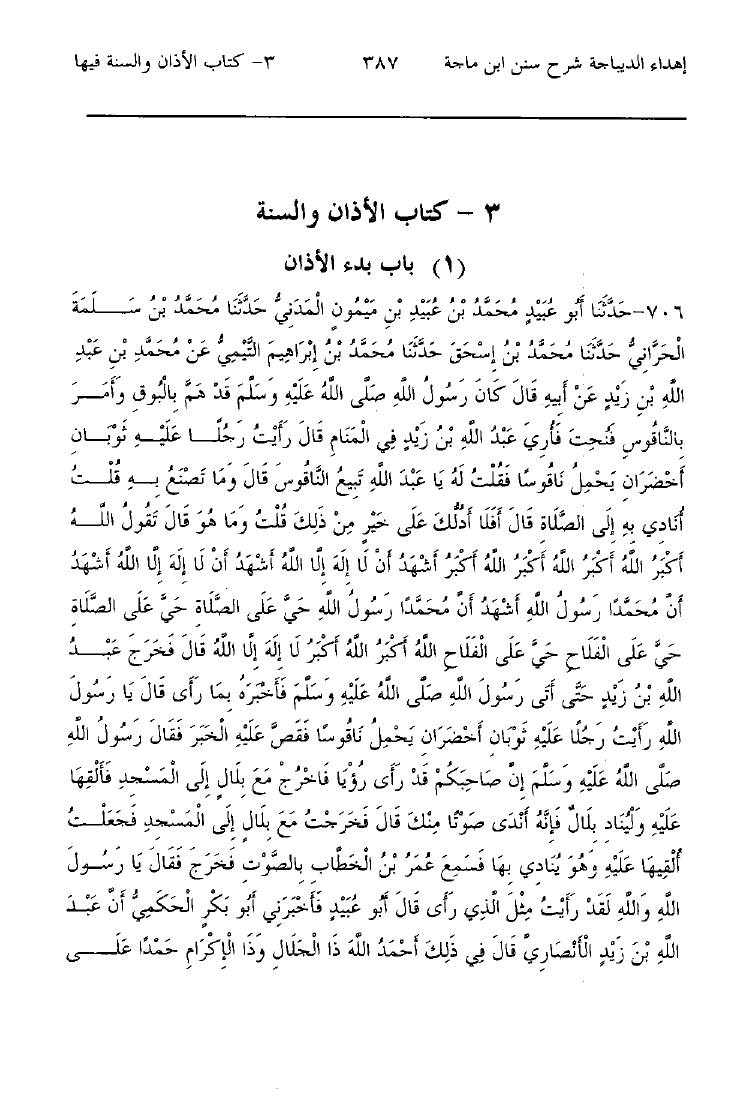 إهداء الديباجة شرح سنن ابن ماجة ٣٨٧ ٣- كتاب الأذان والسنة فيها
٣ - كتاب الأذان والسنة
(١) باب بدء الأذان
٧٠٦-حَدَّثَنَا أَبُو عُبَيْدٍ مُحَمَّدُ بْنُ عُبَيْدِ بْنِ مَيْمُونٍ الْمَدَنِيُّ حَدَّثَنَا مُحَمَّدُ بْنُ سَلَمَةَ
الْحَرَّانِيُّ حَدَّثَنَا مُحَمَّدُ بْنُ إِسْحَقَ حَدَّثَنَا مُحَمَّدُ بْنُ إِبْرَاهِيمَ التَّيْمِيُّ عَنْ مُحَمَّدِ بْنِ عَبْدِ
اللَّهِ بْنِ زَيْدٍ عَنْ أَبِيهِ قَالَ كَانَ رَسُولُ اللَّهِ صَلَّى اللَّهُ عَلَيْهِ وَسَلَّمَ قَدْ هَمَّ بِالْبُوقِ وَأَمَرَ
بِالنَّاقُوسِ فَنُحِتَ فَأُرِيَ عَبْدُ اللَّهِ بْنُ زَيْدٍ فِي الْمَنَامِ قَالَ رَأَيْتُ رَجُلًا عَلَيْهِ ثَوْبَانِ
أَخْضَرَانِ يَحْمِلُ نَاقُوسًا فَقُلْتُ لَهُ يَا عَبْدَ اللَّهِ تَبِيعُ النَّاقُوسَ قَالَ وَمَا تَصْنَعُ بِهِ قُلْتُ
أُنَادِي بِهِ إِلَى الصَّلَاةِ قَالَ أَفَلَا أَدُلُّكَ عَلَى خَيْرٍ مِنْ ذَلِكَ قُلْتُ وَمَا هُوَ قَالَ تَقُولُ اللَّهُ
أَكْبَرُ اللَّهُ أَكْبَرُ اللَّهُ أَكْبَرُ اللَّهُ أَكْبَرُ أَشْهَدُ أَنْ لَا إِلَهَ إِلَّا اللَّهُ أَشْهَدُ أَنْ لَا إِلَهَ إِلَّا اللَّهُ أَشْهَدُ
أَنَّ مُحَمَّدًا رَسُولُ اللَّهِ أَشْهَدُ أَنَّ مُحَمَّدًا رَسُولُ اللَّهِ حَيَّ عَلَى الصَّلَاةِ حَيَّ عَلَى الصَّلَاةِ
حَيَّ عَلَى الْفَلَاحِ حَيَّ عَلَى الْفَلَاحِ اللَّهُ أَكْبَرُ اللَّهُ أَكْبَرُ لَا إِلَهَ إِلَّا اللَّهُ قَالَ فَخَرَجَ عَبْدُ
اللَّهِ بْنُ زَيْدٍ حَتَّى أَتَى رَسُولَ اللَّهِ صَلَّى اللَّهُ عَلَيْهِ وَسَلَّمَ فَأَخْبَرَهُ بِمَا رَأَى قَالَ يَا رَسُولَ
اللَّهِ رَأَيْتُ رَجُلًا عَلَيْهِ ثَوْبَانِ أَخْضَرَانِ يَحْمِلُ نَاقُوسًا فَقَصَّ عَلَيْهِ الْخَبَرَ فَقَالَ رَسُولُ اللَّهِ
صَلَّى اللَّهُ عَلَيْهِ وَسَلَّمَ إِنَّ صَاحِبَكُمْ قَدْ رَأَى رُؤْيَا فَاخْرُجْ مَعَ بِلَالٍ إِلَى الْمَسْجِدِ فَأَلْقِهَا
عَلَيْهِ وَلْيُنَادِ بِلَالٌ فَإِنَّهُ أَنْدَى صَوْتًا مِنْكَ قَالَ فَخَرَجْتُ مَعَ بِلَالٍ إِلَى الْمَسْجِدِ فَجَعَلْتُ
أُلْقِيهَا عَلَيْهِ وَهُوَ يُنَادِي بِهَا فَسَمِعَ عُمَرُ بْنُ الْخَطَّابِ بِالصَّوْتِ فَخَرَجَ فَقَالَ يَا رَسُولَ
اللَّهِ وَاللَّهِ لَقَدْ رَأَيْتُ مِثْلَ الَّذِي رَأَى قَالَ أَبُو عُبَيْدٍ فَأَخْبَرَنِي أَبُو بَكْرٍ الْحَكَمِيُّ أَنَّ عَبْدَ
اللَّهِ بْنَ زَيْدٍ الْأَنْصَارِيَّ قَالَ فِي ذَلِكَ أَحْمَدُ اللَّهَ ذَا الْجَلَالِ وَذَا الْإِكْرَامِ حَمْدًا عَلَى